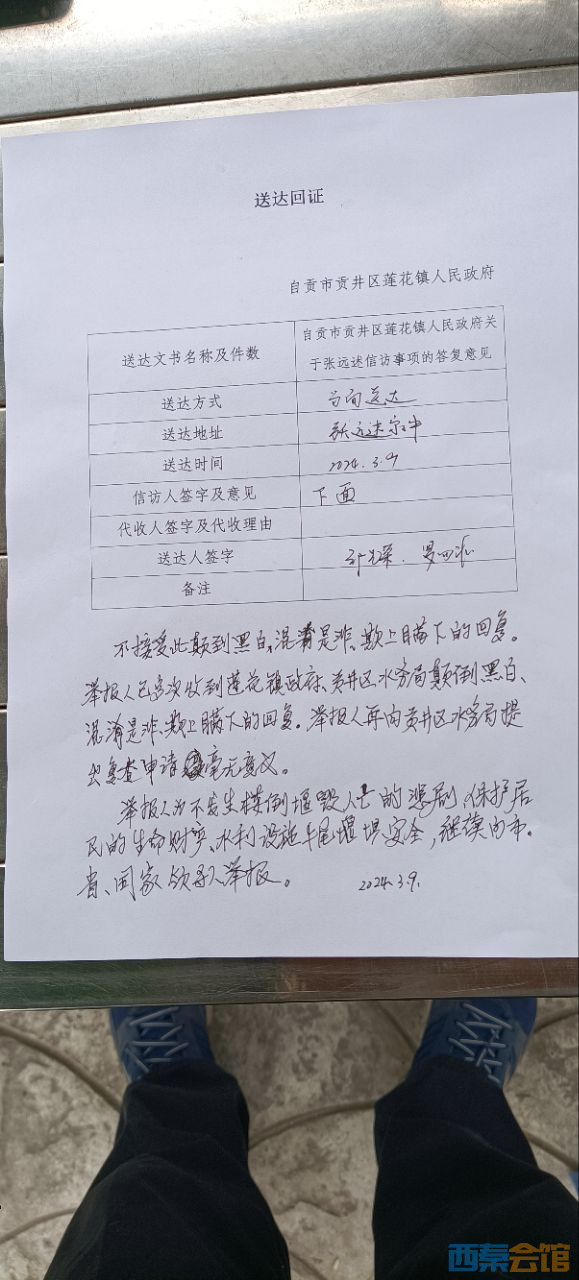 送达回证
自贡市贡井区莲花镇人民政府
送达文书名称及件数
自贡市贡井区莲花镇人民政府关
于张远述信访事项的答复意见
送达方式 当面送达
送达地址 张远述家中
送达时间 2024.3.9
信访人签字及意见 下面
代收人签字及代收理由
送达人签字
备注
不接受此颠到黑白、混淆是非、欺上瞒下的回复。
举报人已多次收到莲花镇政府、贡井区水务局颠倒黑白、
混淆是非、欺上瞒下的回复。举报人再向贡井区水务局提
出复查申请毫无意义。
举报人为不发生楼倒堰毁人亡的悲剧、保护居
民的生命财产、水利设施牛尾堰坝安全，继续向市、
省、国家领导人举报。 2024.3.9.
西秦会馆